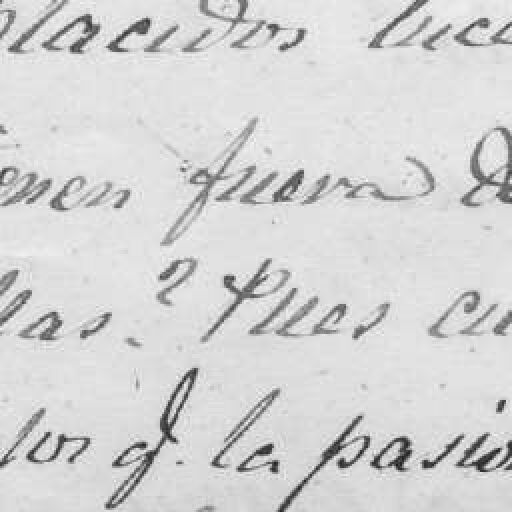 placidos luce
enen fuera de
llas.? Pues cu
los q. la pasion